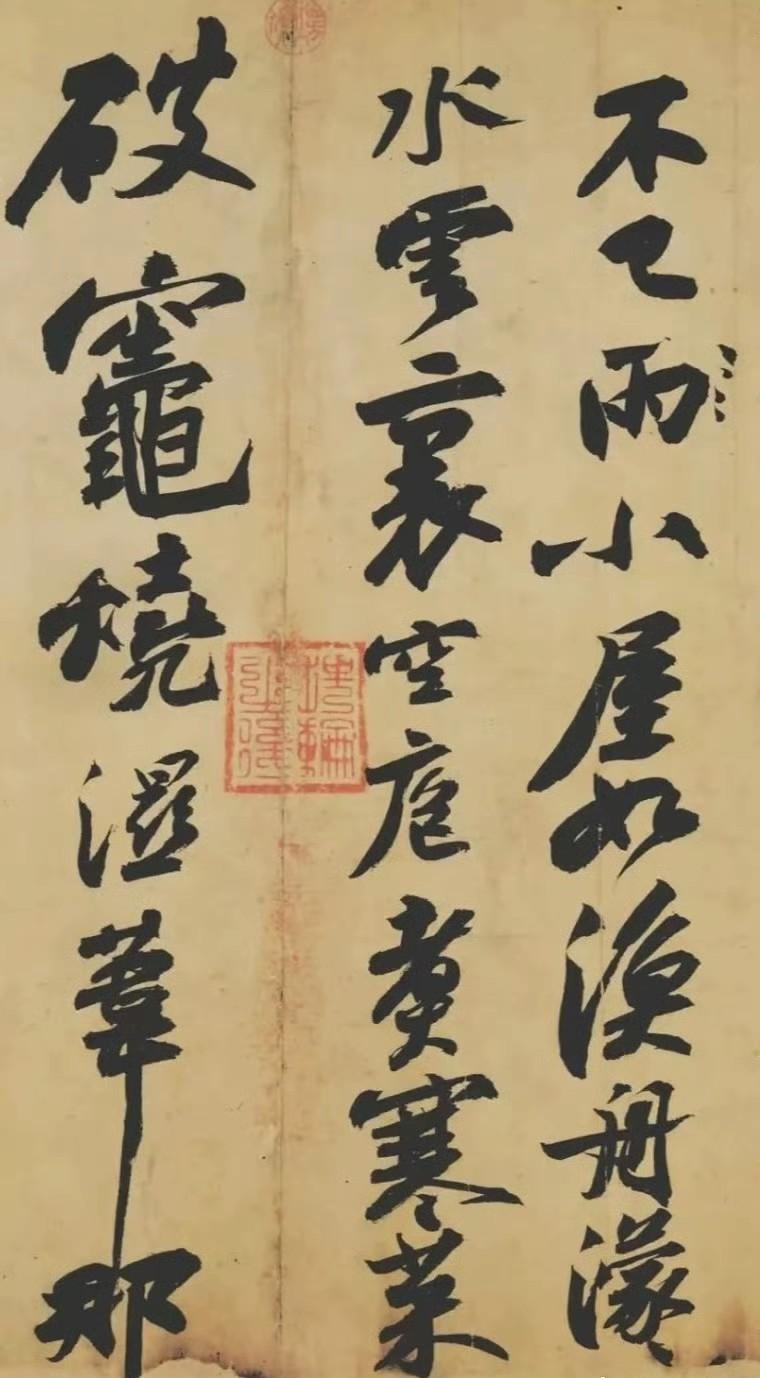 不已雨小屋如漁舟濛〻
水雲裏空庖煮寒菜
破竈燒濕葦那
埋輪之後